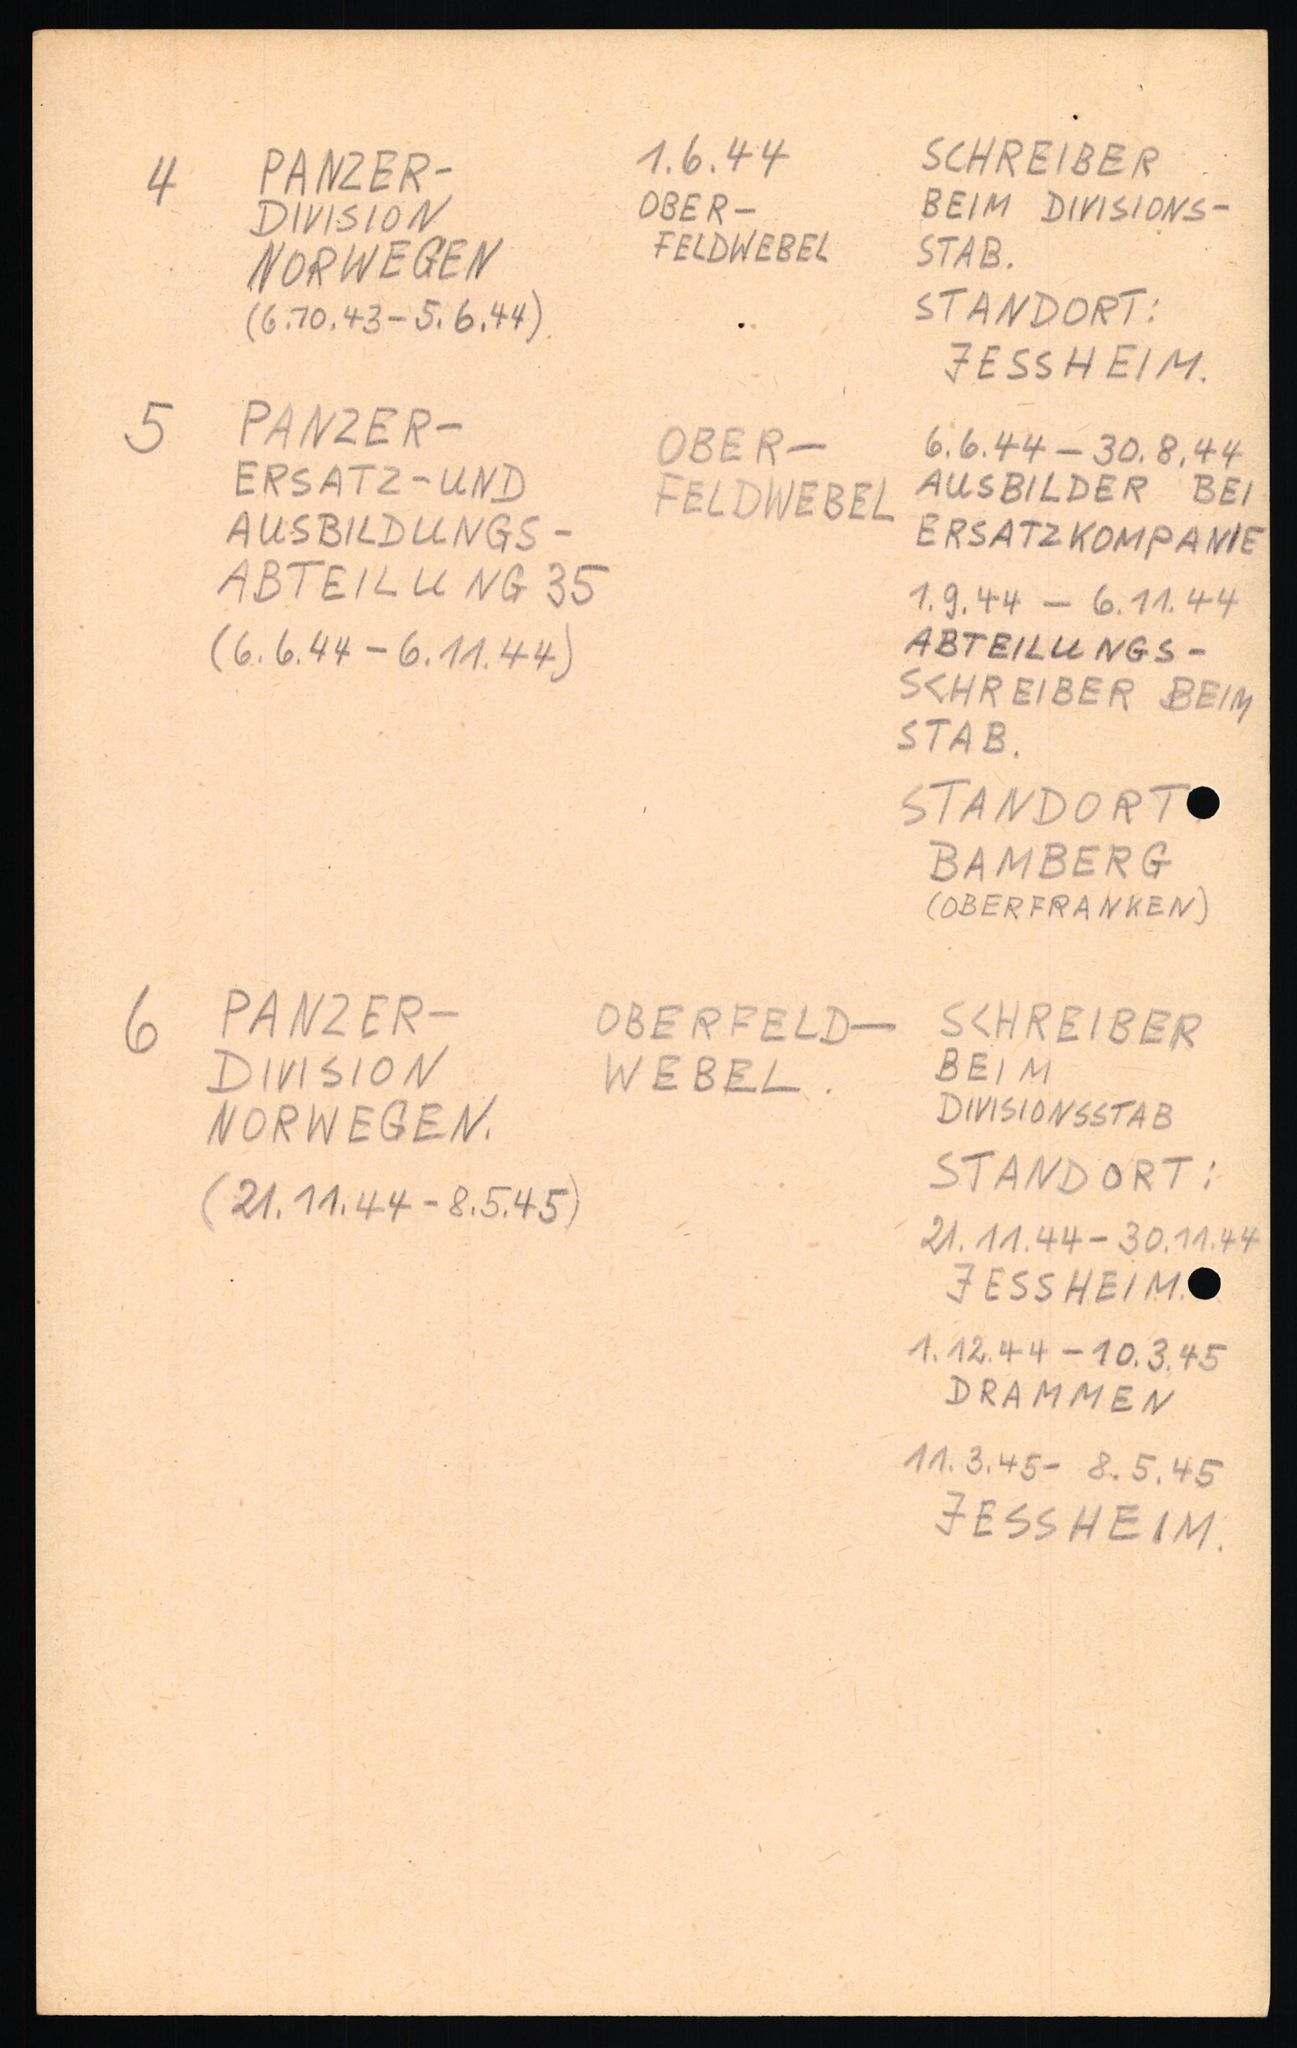 4
PANZER-
DIVISION
NORWEGEN
(6.10.43 - 5.6.44)
1.6.44
OBER-
FELDWEBEL
SCHREIBER
BEIM DIVISIONS-
STAB.
STANDORT:
JESSHEIM.
5
PANZER-
ERSATZ-UND
AUSBILDUNGS-
ABTEILUNG 35
(6.6.44 - 6.11.44)
OBER-
FELDWEBEL
6.6.44 - 30.8.44
AUSBILDER BEI
ERSATZKOMPANIE
1.9.44 - 6.11.44
ABTEILUNGS-
SCHREIBER BEIM
STAB.
STANDORT
BAMBERG
(OBERFRANKEN)
6
PANZER-
DIVISION
NORWEGEN.
(21.11.44 - 8.5.45)
OBERFELD-
WEBEL.
SCHREIBER
BEIM
DIVISIONSSTAB
STANDORT:
21.11.44 - 30.11.44
JESSHEIM.
1.12.44 - 10.3.45
DRAMMEN
11.3.45 - 8.5.45
JESSHEIM.